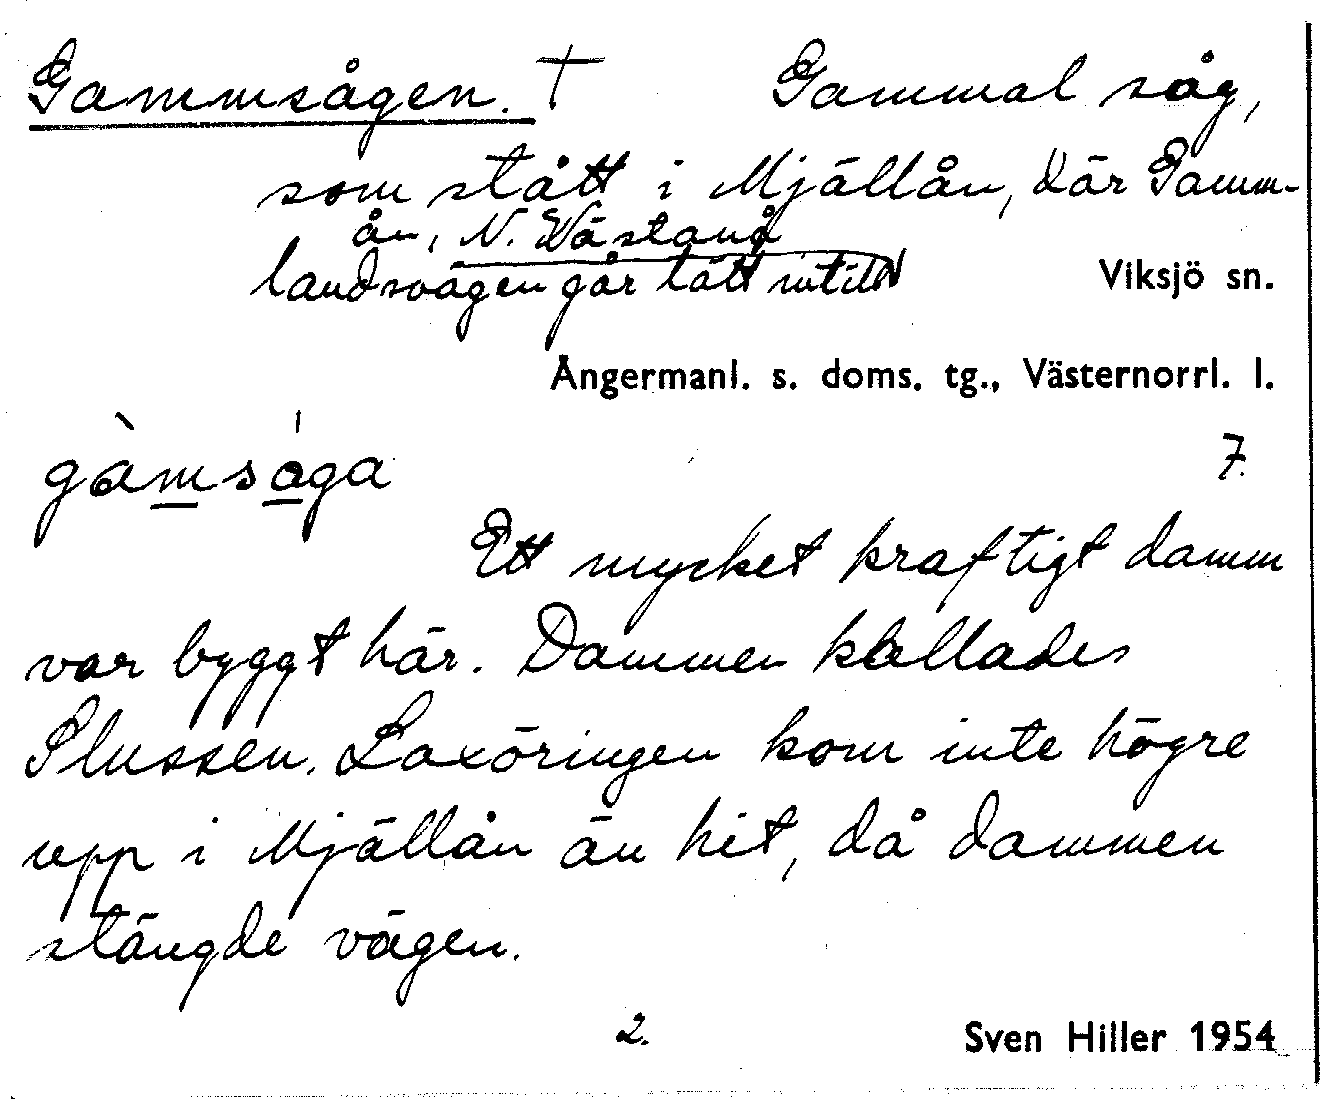 Gammsågen. † Gammal såg,
som stått i Mjällån, där Gamm-
ån, N. Västanå
landsvägen går tätt intill
Viksjö sn.
Ångermanl. s. doms. tg., Västernorrl. l.
gàmsåga
7.
Ett mycket kraftigt damm
var byggt här. Dammen kallades
Slussen. Laxöringen kom inte högre
upp i Mjällån än hit, då dammen
stängde vägen.
2.
Sven Hiller 1954